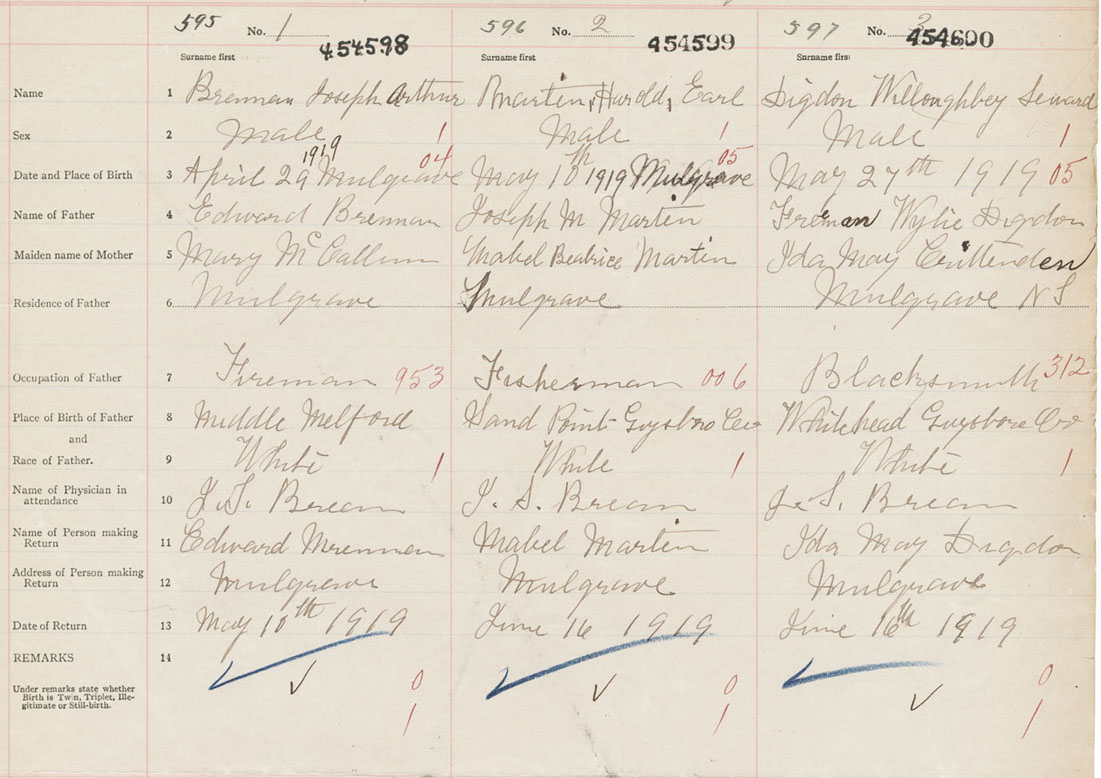 595 No. 1 454598 596 No. 2 454599 597 No. 3 454600
Surname first Surname first Surname first
Name 1 Brennan Joseph Arthur Martin, Harold, Earl Digdon Willoughbey Seward
Sex 2 Male 1 Male 1 Male 1
Date and Place of Birth 3 April 29 1919 Mulgrave 04 May 10th 1919 Mulgrave 05 May 27th 1919 05
Name of Father 4 Edward Brennan Joseph M Martin Freman Wylie Digdon
Maiden name of Mother 5 Mary McCallum Mabel Beatrice Martin Ida May Crittenden
Residence of Father 6 Mulgrave Mulgrave Mulgrave N S
Occupation of Father 7 Fireman 953 Fisherman 006 Blacksmith 312
Place of Birth of Father 8 Middle Melford Sand Point Guysboro Co Whitehead Guysboro Co
and
Race of Father. 9 White 1 White 1 White 1
Name of Physician in
attendance 10 J. S. Brean J. S. Brean J. S. Brean
Name of Person making
Return 11 Edward Mrennan Mabel Martin Ida May Digdon
Address of Person making
Return 12 Mulgrave Mulgrave Mulgrave
Date of Return 13 May 10th 1919 June 16 1919 June 16th 1919
REMARKS 14
Under remarks state whether
Birth is Twin, Triplet, Ille-
gitimate or Still-birth.
0 0 0
1 1 1